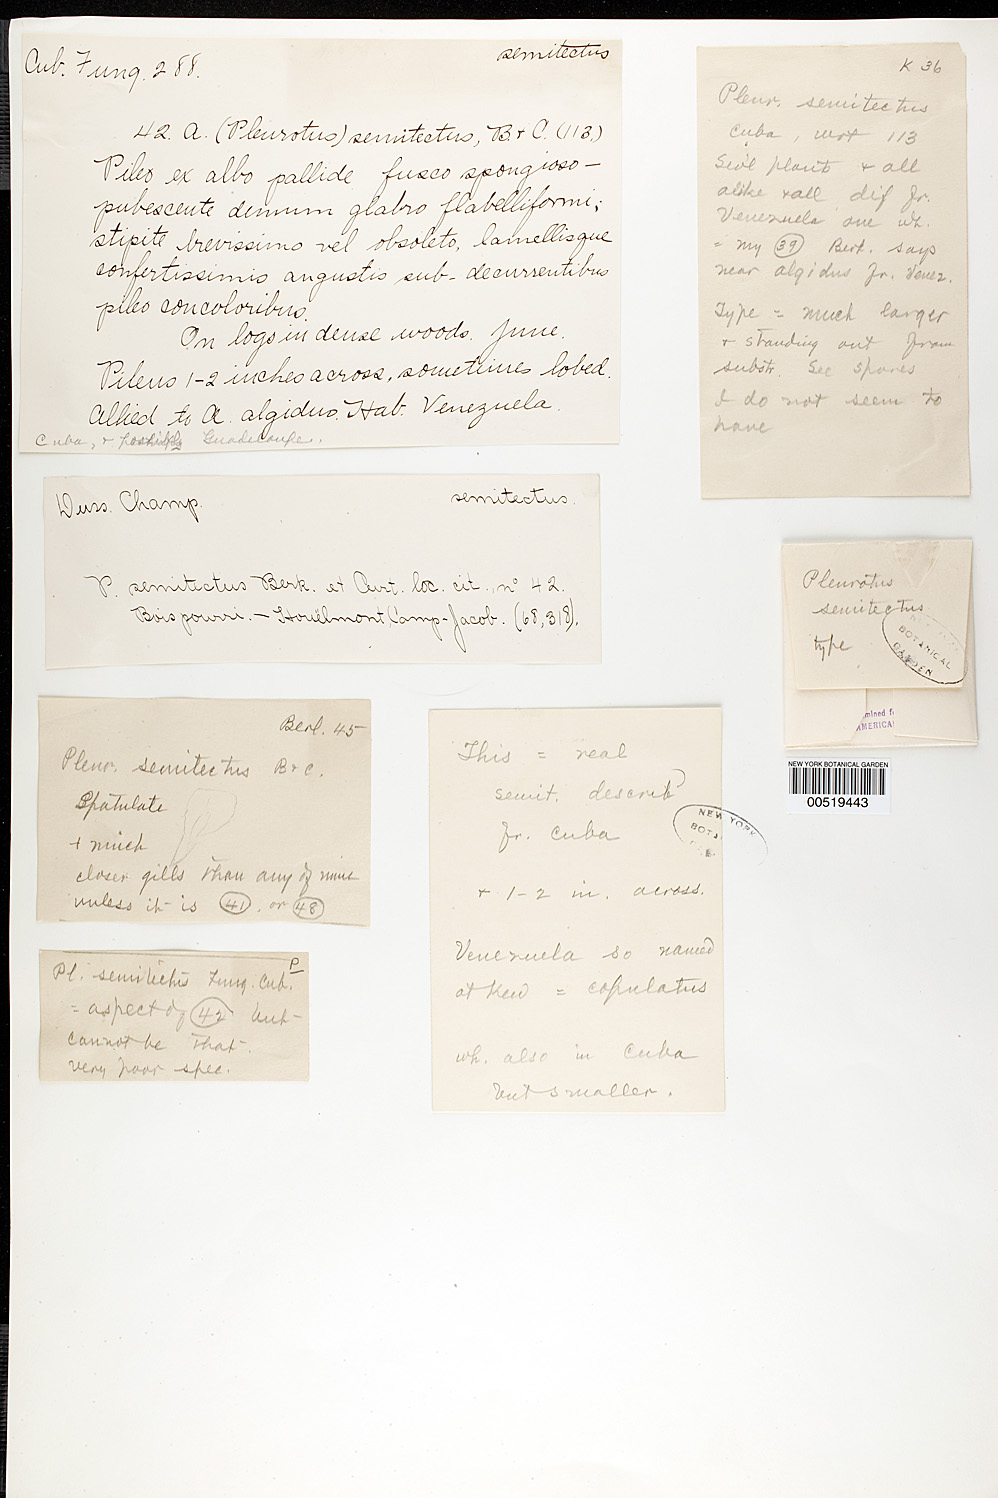 Cub. Fung. 288.
semitectus
42. A. (Pleurotus) semitectus, B. & C. (113)
Pileo ex albo pallide fusco spongioso-
pubescente demum glabro flabelliformi;
stipite brevissimo vel obsoleto, lamellisque
confertissimis angustis sub-decurrentibus
pileo concoloribus.
On logs in dense woods. June.
Pileus 1-2 inches across, sometimes lobed.
Allied to A. algidus. Hab. Venezuela.
Cuba, & possibly Guadeloupe.
K 36
Pleur. semitectus
Cuba, wrt 113
Sev'l plants & all
alike & all dif fr.
Venezuela one wh.
= my 39 Berk. says
near algidus fr. Venez.
Type = much larger
& standing out from
substr. See spores
I do not seem to
have
Duss. Champ.
semitectus.
P. semitectus Berk. et Curt. loc. cit., n° 42.
Bois pourri. — Houëlmont, Camp-Jacob. (68, 318).
Pleurotus
semitectus
type
NEW YORK
BOTANICAL
GARDEN
mined f
AMERICA
NEW YORK BOTANICAL GARDEN
00519443
Berl. 45
Pleur. semitectus B & C.
Spatulate
& much
closer gills than any of mine
unless it is 41. or 48
P
Pl. semitectus Fung. Cub.
= aspect of 42 but
cannot be that.
very poor spec.
This = real
semit. describ
fr. Cuba
& 1-2 in. across.
Venezuela so named
at Kew = copulatus
wh. also in Cuba
but smaller.
NEW YORK
BOTA